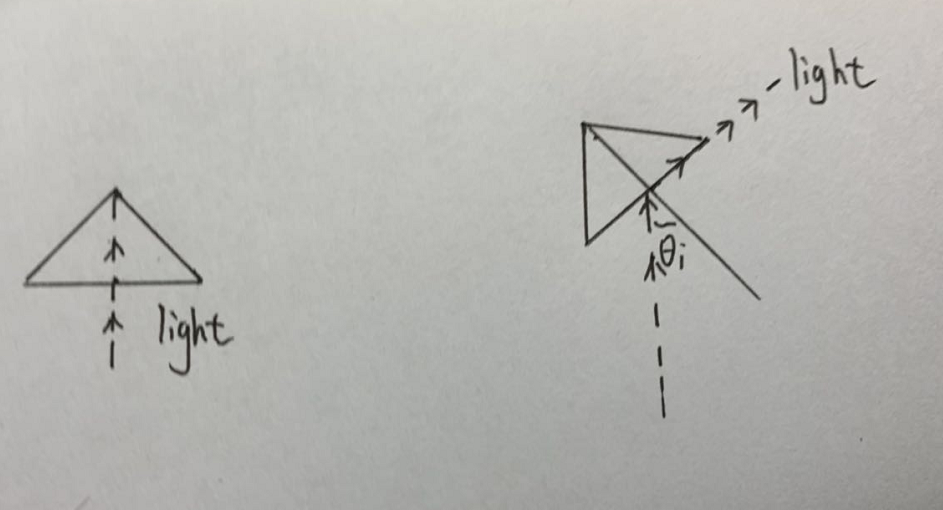 light
light
θi